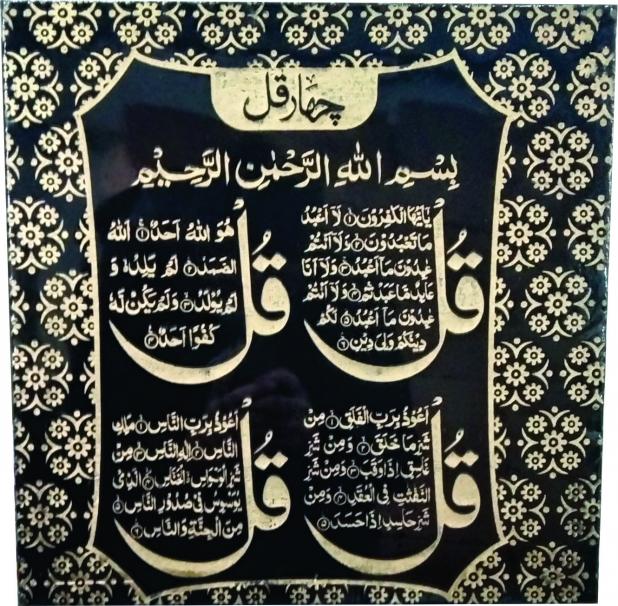 چہار قل
بِسْمِ اللهِ الرَّحْمٰنِ الرَّحِيْمِ
قُلْ
يٰٓاَيُّهَا الْكٰفِرُوْنَ ۱ لَآ اَعْبُدُ
مَا تَعْبُدُوْنَ ۲ وَلَآ اَنْتُمْ
عٰبِدُوْنَ مَآ اَعْبُدُ ۳ وَلَآ اَنَا
عَابِدٌ مَّا عَبَدْتُّمْ ۴ وَلَآ اَنْتُمْ
عٰبِدُوْنَ مَآ اَعْبُدُ ۵ لَكُمْ
دِيْنُكُمْ وَلِيَ دِيْنِ ۶
قُلْ
هُوَ اللهُ اَحَدٌ ۱ اَللهُ
الصَّمَدُ ۲ لَمْ يَلِدْ وَ
لَمْ يُوْلَدْ ۳ وَلَمْ يَكُنْ لَّهٗ
كُفُوًا اَحَدٌ ۴
قُلْ
اَعُوْذُ بِرَبِّ الْفَلَقِ ۱ مِنْ
شَرِّ مَا خَلَقَ ۲ وَمِنْ شَرِّ
غَاسِقٍ اِذَا وَقَبَ ۳ وَمِنْ شَرِّ
النَّفّٰثٰتِ فِى الْعُقَدِ ۴ وَمِنْ
شَرِّ حَاسِدٍ اِذَا حَسَدَ ۵
قُلْ
اَعُوْذُ بِرَبِّ النَّاسِ ۱ مَلِكِ
النَّاسِ ۲ اِلٰهِ النَّاسِ ۳ مِنْ
شَرِّ الْوَسْوَاسِ الْخَنَّاسِ ۴ الَّذِىْ
يُوَسْوِسُ فِىْ صُدُوْرِ النَّاسِ ۵
مِنَ الْجِنَّةِ وَالنَّاسِ ۶